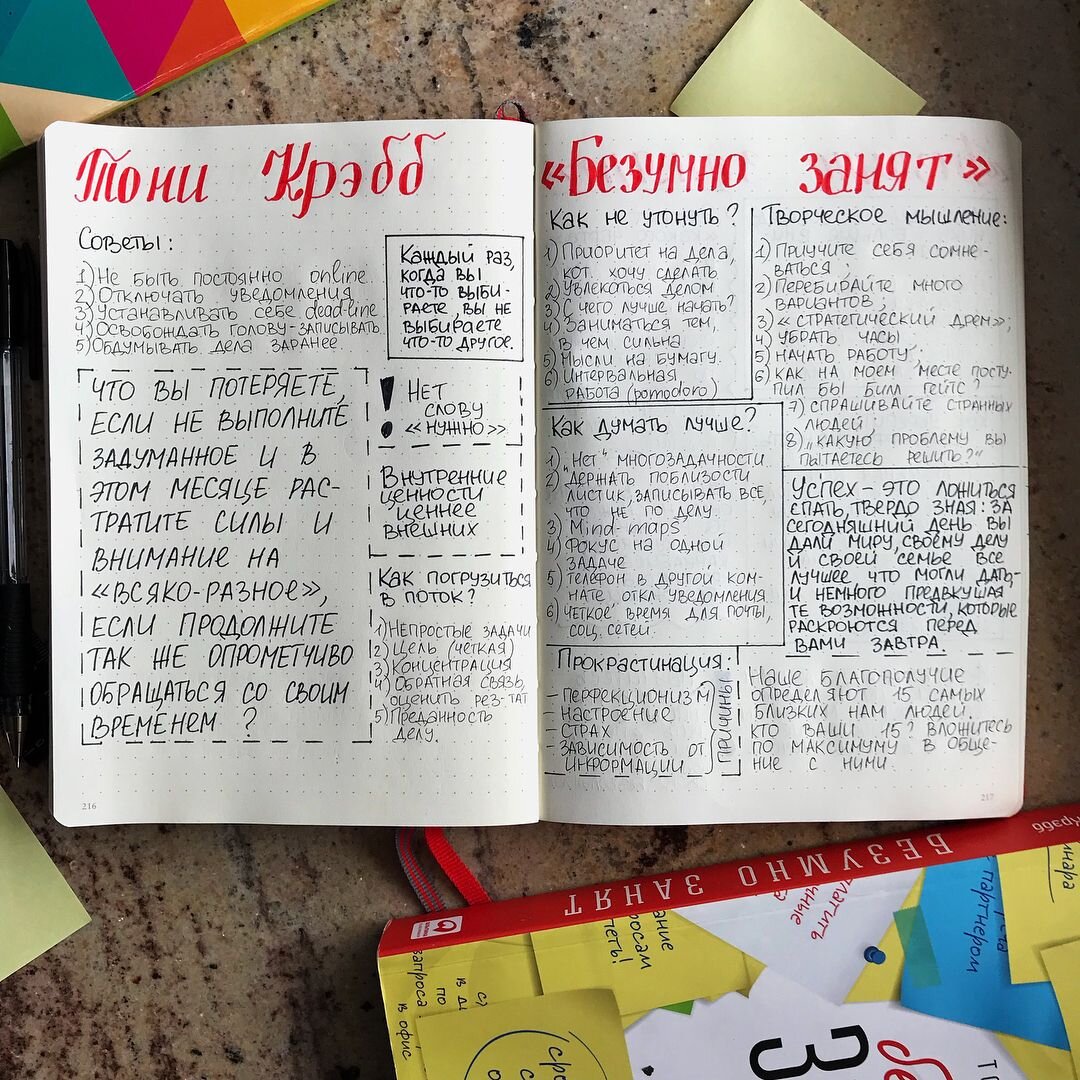 Тони Крэбб
Советы:
1) Не быть постоянно online.
2) Отключать уведомления
3) Устанавливать себе dead-line
4) Освобождать голову - записывать
5) Обдумывать дела заранее.
Каждый раз,
когда вы
что-то выби-
раете, вы не
выбираете
что-то другое.
Что вы потеряете,
если не выполните
задуманное и в
этом месяце рас-
тратите силы и
внимание на
«всяко-разное»,
если продолжите
так же опрометчиво
обращаться со своим
временем?
! Нет
слову
«нужно»
Внутренние
ценности
ценнее
внешних
Как погрузиться
в поток?
1) Непростые задачи
2) Цель (четкая)
3) Концентрация
4) Обратная связь,
оценить рез-тат
5) Преданность
делу.
216
«Безумно занят»
Как не утонуть?
1) Приоритет на дела,
кот. хочу сделать
2) Увлекаться делом
3) С чего лучше начать?
4) Заниматься тем,
в чем сильна.
5) Мысли на бумагу.
6) Интервальная
работа (pomodoro)
Творческое мышление:
1) Приучите себя сомне-
ваться;
2) Перебирайте много
вариантов;
3) «Стратегический дрем»;
4) Убрать часы
5) Начать работу;
6) Как на моем месте посту-
пил бы Билл Гейтс?
7) Спрашивайте странных
людей;
8) „Какую проблему вы
пытаетесь решить?“
Как думать лучше?
1) „Нет" многозадачности.
2) Держать поблизости
листик, записывать все,
что не по делу.
3) Mind-maps
4) Фокус на одной
задаче
5) Телефон в другой ком-
нате откл. уведомления
6) Четкое время для почты,
соц. сетей.
Успех - это ложиться
спать, твердо зная: за
сегодняшний день вы
дали миру, своему делу
и своей семье все
лучшее что могли дать,-
и немного предвкушая
те возможности, которые
раскроются перед
вами завтра.
Прокрастинация:
- перфекционизм
- настроение
- страх
- зависимость от
информации
причины
Наше благополучие
определяют 15 самых
близких нам людей.
Кто ваши 15? Вложитесь
по максимуму в обще-
ние с ними.
217
Крэбб
БЕЗУМНО ЗАНЯТ
партнером
запроса
в офис